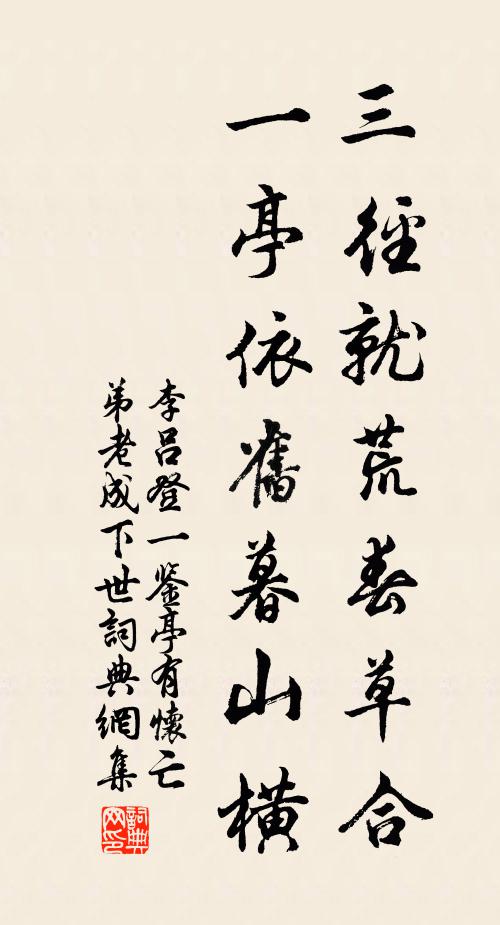 三徑就荒春草合
一亭依舊暮山橫
李呂登一鉴亭有懷亡
弟老成下世詞典網集
詞典
网印